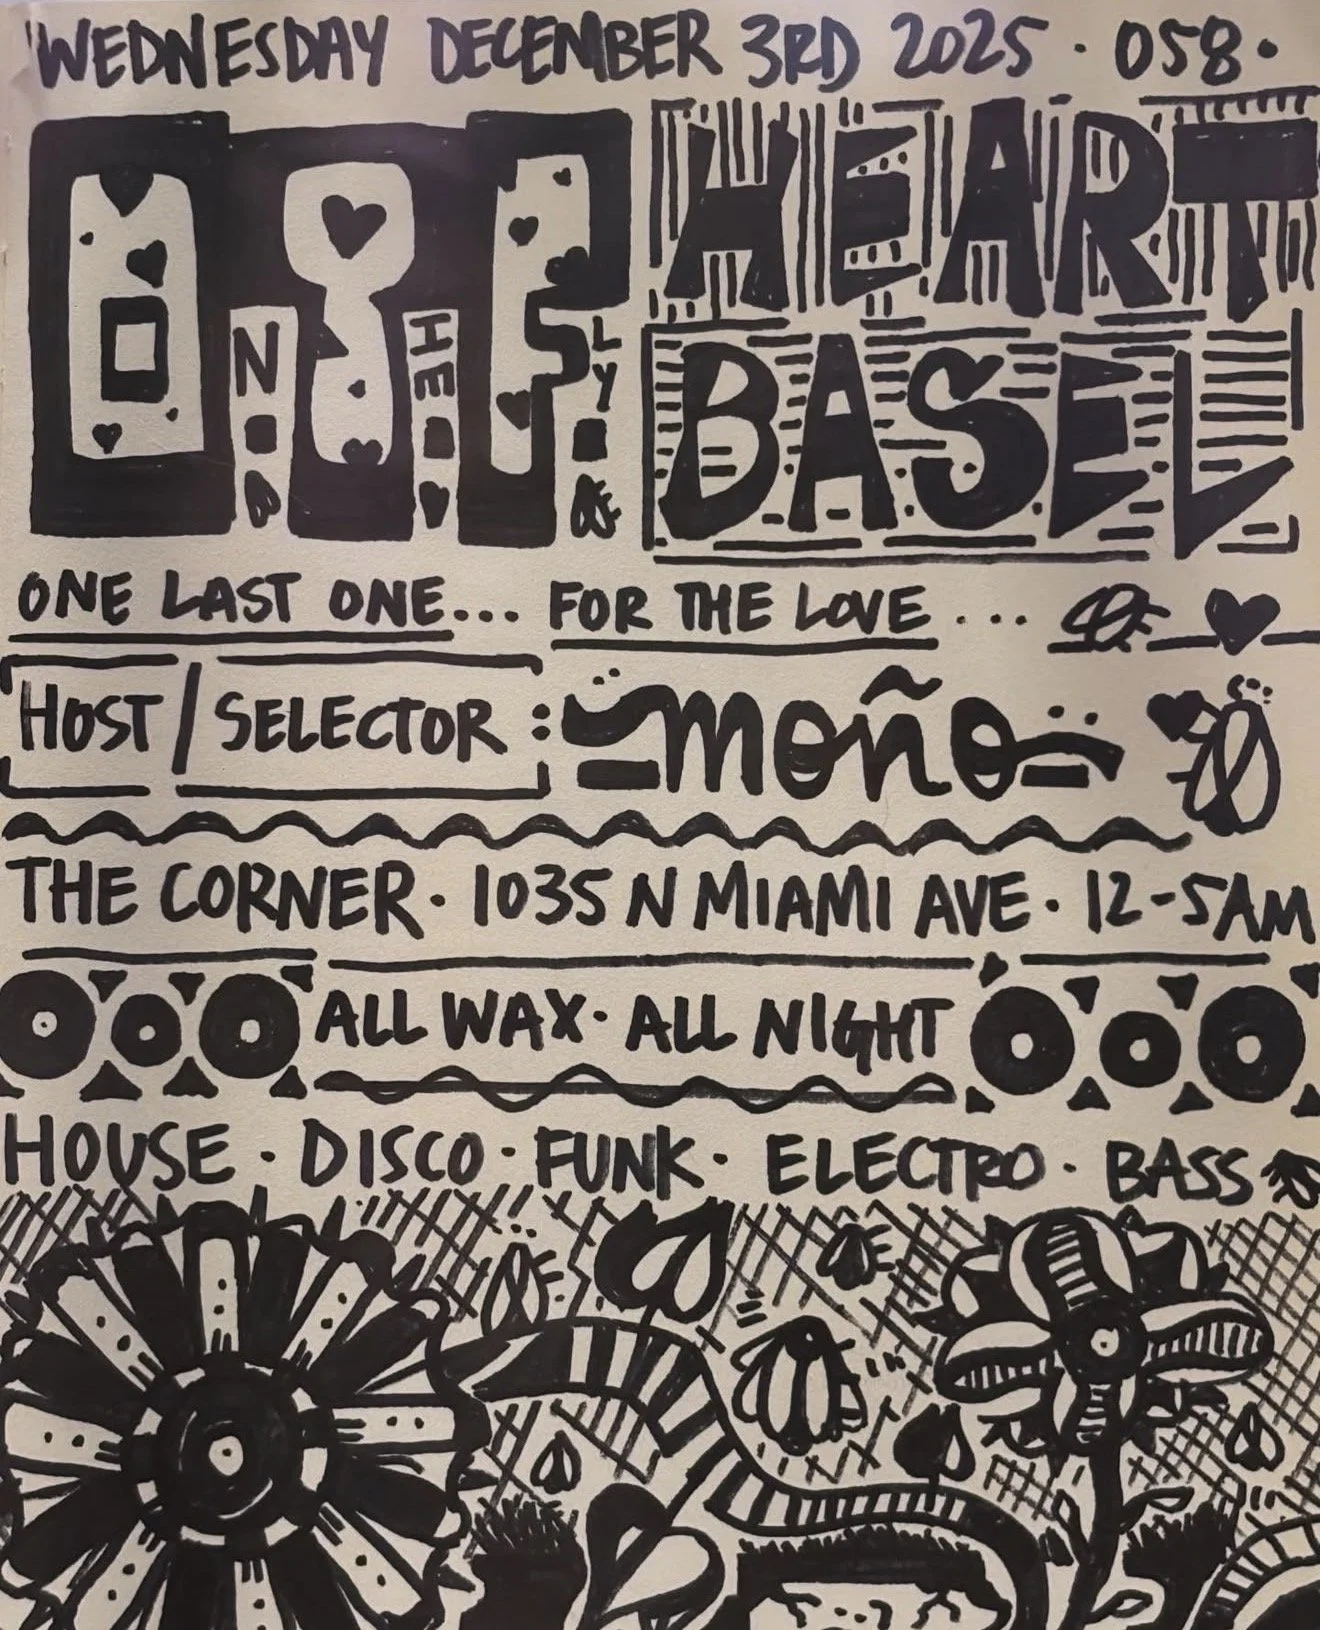 WEDNESDAY DECEMBER 3RD 2025 · 058 ·
ON THE FLY
HEART
BASEL
ONE LAST ONE... FOR THE LOVE ...
HOST / SELECTOR : moño
THE CORNER · 1035 N MIAMI AVE · 12-5AM
ALL WAX · ALL NIGHT
HOUSE · DISCO · FUNK · ELECTRO · BASS